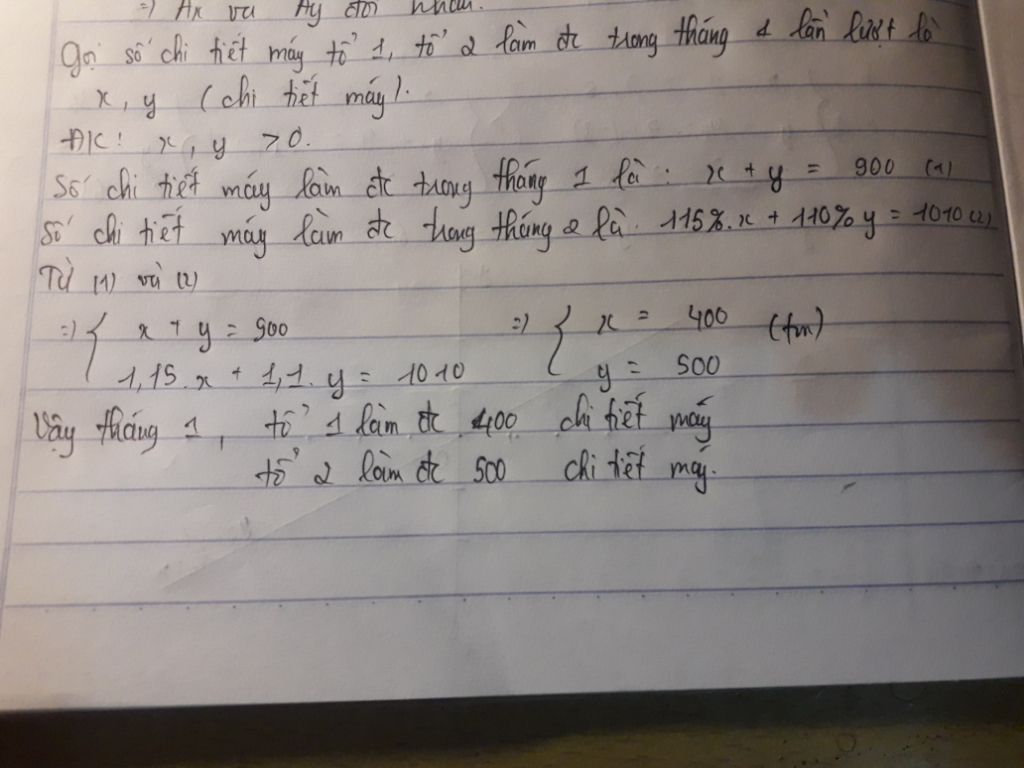 =) Ax và Ay đối nhau.
Gọi số chi tiết máy tổ 1, tổ 2 làm đc trong tháng 1 lần lượt là
x, y (chi tiết máy).
ĐK: x, y > 0.
Số chi tiết máy làm đc trong tháng 1 là: x + y = 900 (1)
Số chi tiết máy làm đc trong tháng 2 là: 115%.x + 110% y = 1010 (2)
Từ (1) và (2)
=) { x + y = 900 =) { x = 400 (tm)
1,15.x + 1,1.y = 1010 y = 500
Vậy tháng 1, tổ 1 làm đc 400 chi tiết máy
tổ 2 làm đc 500 chi tiết máy.